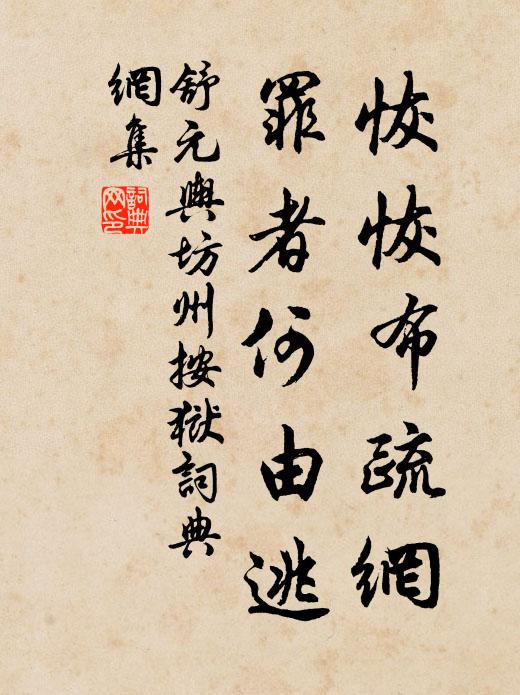 恢恢布疏網
罪者何由逃
舒元輿坊州按獄詞典
網集
詞典網印